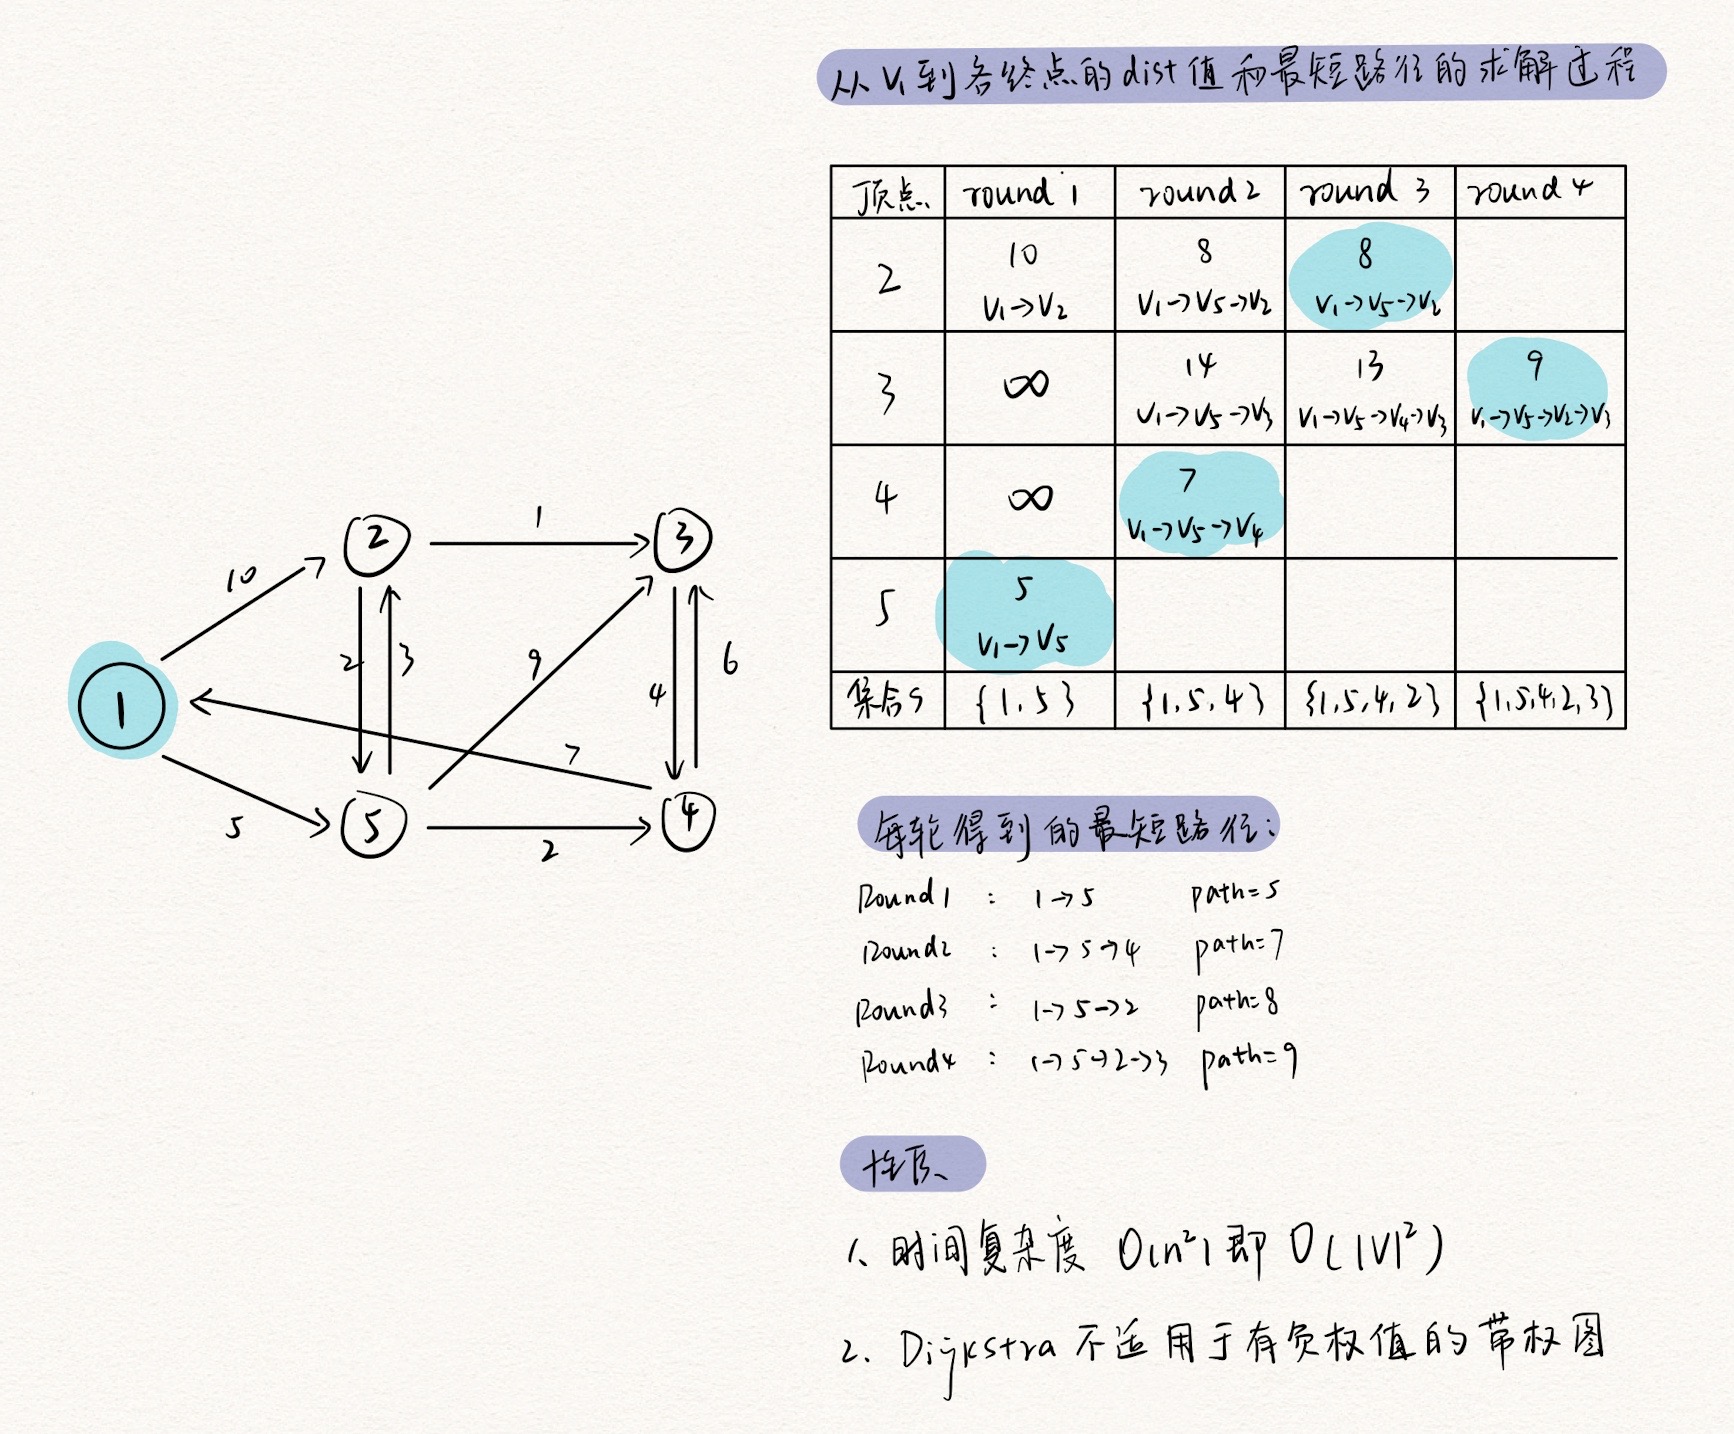 从V₁到各终点的dist值和最短路径的求解过程
顶点 round 1 round 2 round 3 round 4
2 10 8 8
V₁→V₂ V₁→V5→V₂ V₁→V5→V₂
3 ∞ 14 13 9
V₁→V5→V3 V₁→V5→V4→V3 V₁→V5→V2→V3
4 ∞ 7
V₁→V5→V4
5 5
V₁→V5
集合S {1,5} {1,5,4} {1,5,4,2} {1,5,4,2,3}
1
2
3
4
5
10
1
2
3
9
4
6
7
5
2
每轮得到的最短路径:
Round1 : 1→5 path=5
Round2 : 1→5→4 path=7
Round3 : 1→5→2 path=8
Round4 : 1→5→2→3 path=9
性质
1、时间复杂度 O(n²)即 O(|V|²)
2. Dijkstra 不适用于有负权值的带权图